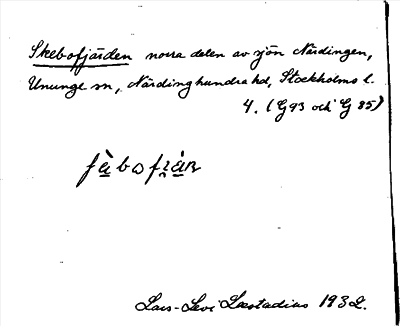 Skebofjärden norra delen av sjön Närdingen,
Ununge sn, Närdinghundra hd, Stockholms l.
4. (G 93 och G 85)
Lars-Levi Læstadius 1932.